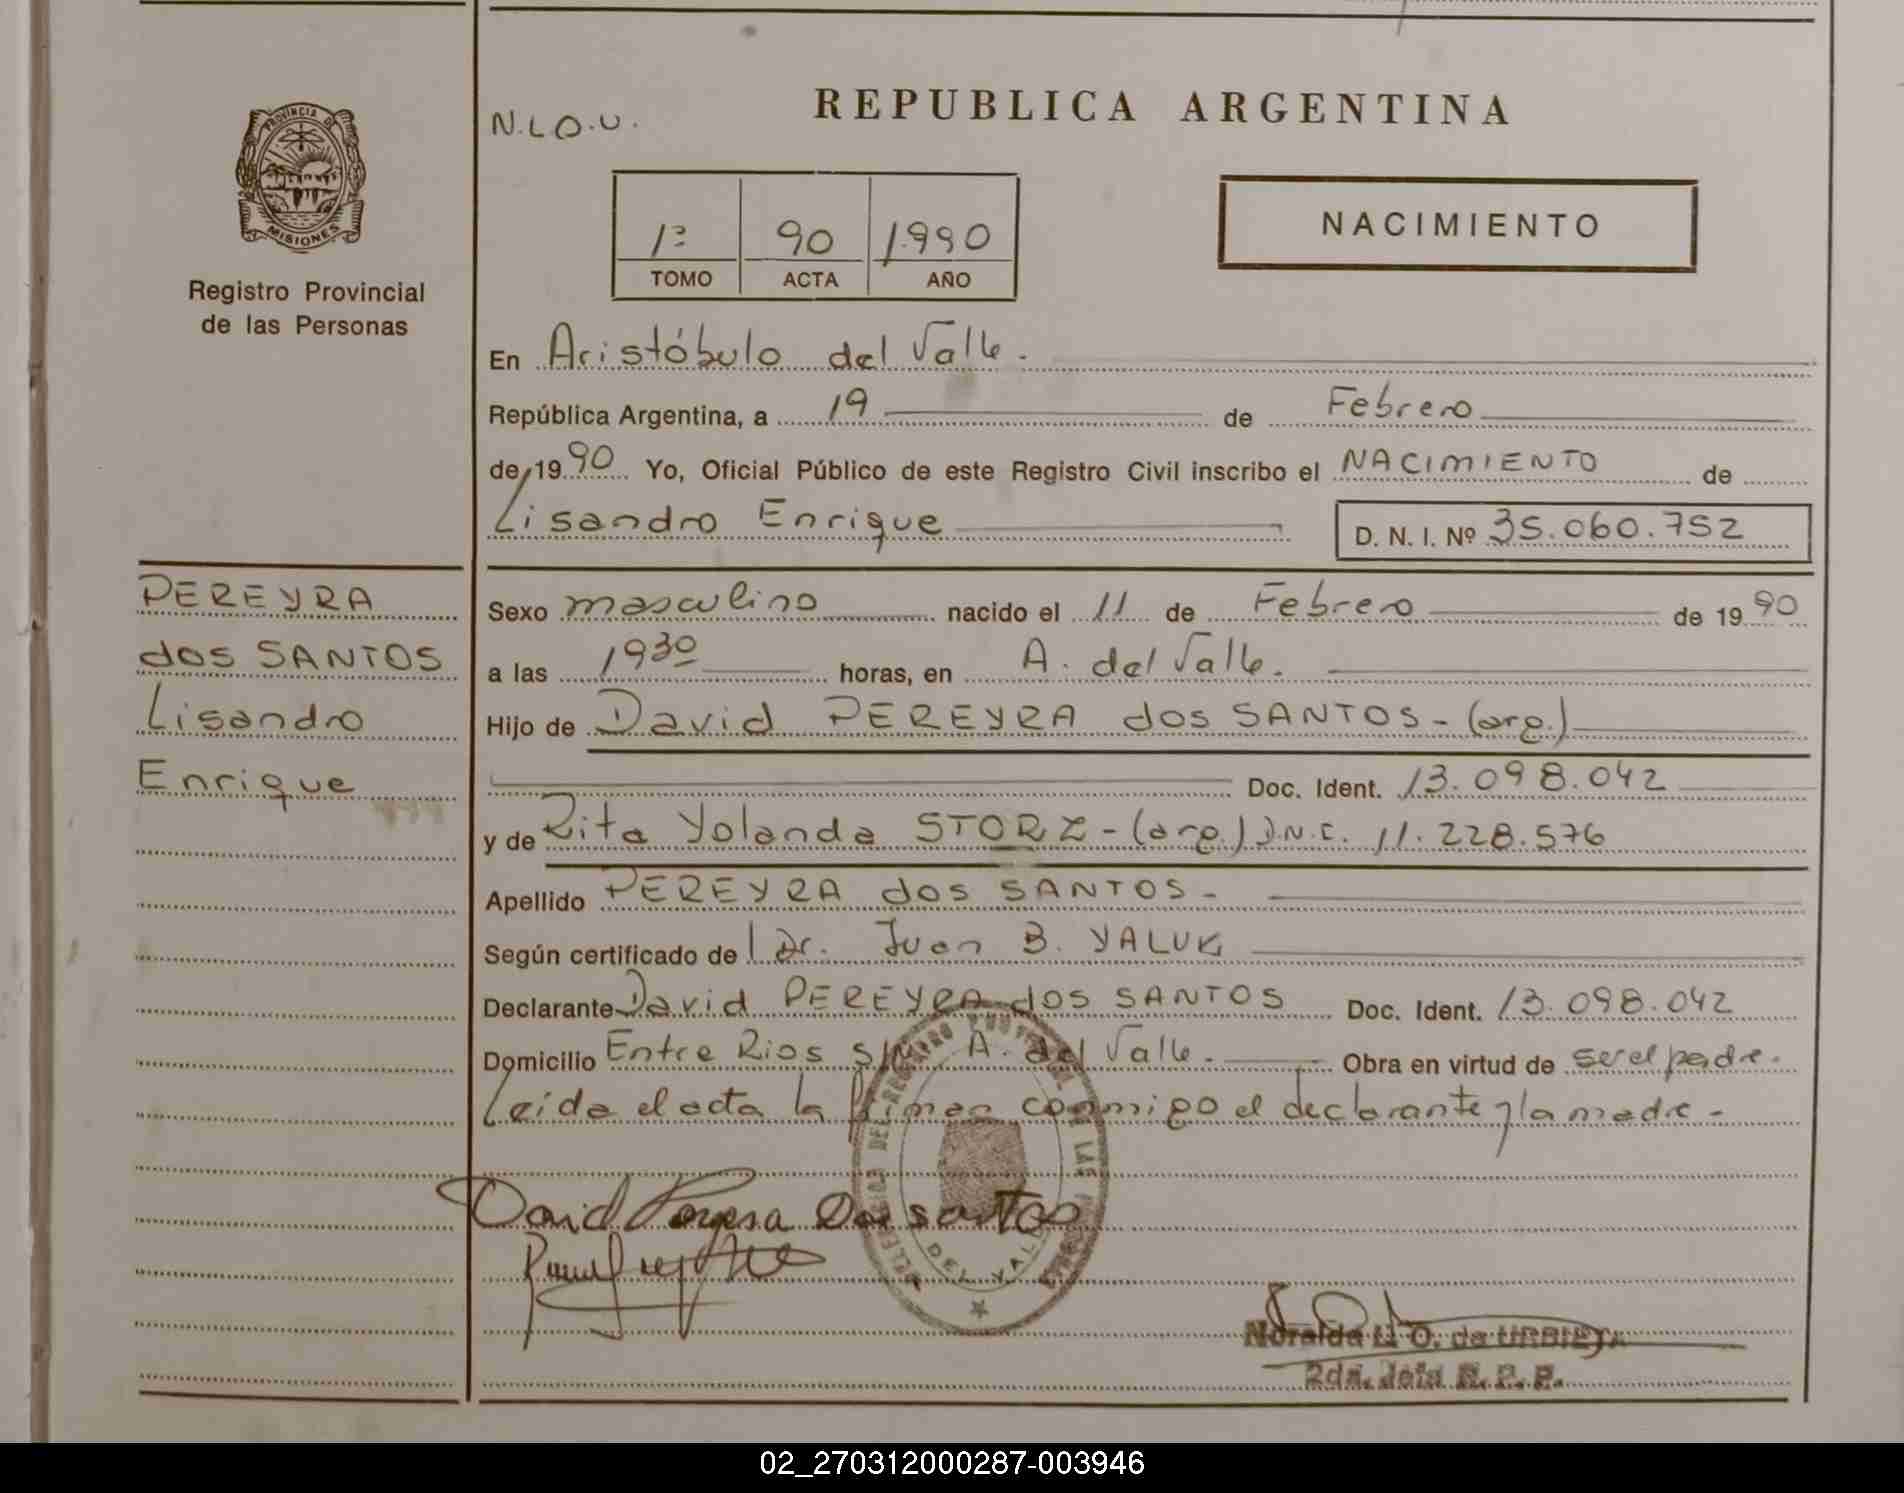 PROVINCIA DE
MISIONES
Registro Provincial
de las Personas
PEREYRA
dos SANTOS
Lisandro
Enrique
N.L.O.U.
REPUBLICA ARGENTINA
1º 90 1.990
TOMO ACTA AÑO
NACIMIENTO
En Aristóbulo del Valle.
República Argentina, a 19 de Febrero
de 1990 Yo, Oficial Público de este Registro Civil inscribo el NACIMIENTO de
Lisandro Enrique
D. N. I. Nº 35.060.752
Sexo masculino nacido el 11 de Febrero de 1990
a las 1930 horas, en A. del Valle.
Hijo de David PEREYRA dos SANTOS - (arg.)
Doc. Ident. 13.098.042
y de Rita Yolanda STORZ - (arg.) D.N.I. 11.228.576
Apellido PEREYRA dos SANTOS -
Según certificado de Dr. Juan B. YALUK
Declarante David PEREYRA dos SANTOS Doc. Ident. 13.098.042
Domicilio Entre Rios s/n A. del Valle. Obra en virtud de ser el padre.
Leida el acta la firman conmigo el declarante y la madre -
David Pereyra Dos santos
DEL VALLE
Noralda L. O. de URBIETA
2da. Jefa R. P. P.
02_270312000287-003946